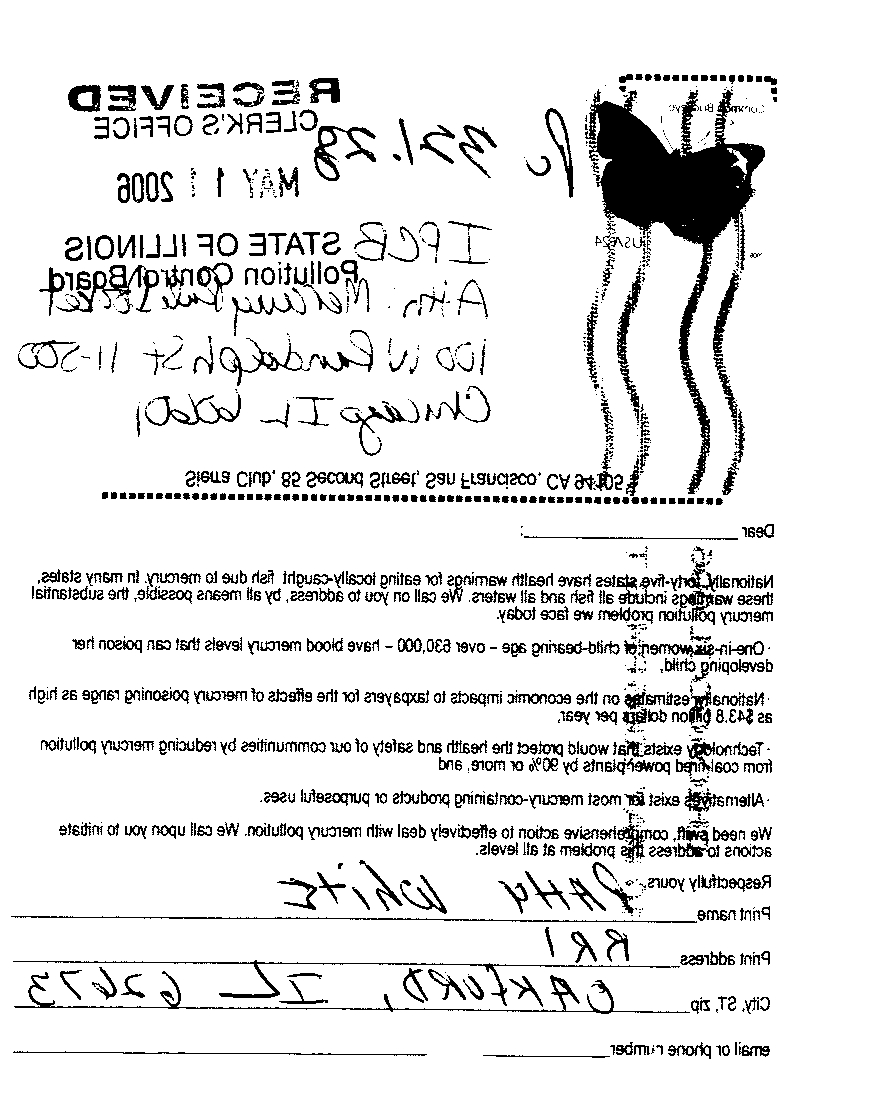 RECEIVED
CLERK'S OFFICE
MAY 11 2006
STATE OF ILLINOIS
Pollution Control Board
Common Buckeye
USA 24
IPCB
Attn: Mercury Rule Docket
100 W Randolph St 11-500
Chicago IL 60601
Sierra Club, 85 Second Street, San Francisco, CA 94105
Dear :
Nationally, forty-five states have health warnings for eating locally-caught fish due to mercury. In many states,
these warnings include all fish and all waters. We call on you to address, by all means possible, the substantial
mercury pollution problem we face today.
· One-in-six women of child-bearing age – over 630,000 – have blood mercury levels that can poison her
developing child,
· Nationally estimates on the economic impacts to taxpayers for the effects of mercury poisoning range as high
as $43.8 billion dollars per year,
· Technology exists that would protect the health and safety of our communities by reducing mercury pollution
from coal-fired power plants by 90% or more, and
· Alternatives exist for most mercury-containing products or purposeful uses.
We need swift, comprehensive action to effectively deal with mercury pollution. We call upon you to initiate
actions to address this problem at all levels.
Respectfully yours,
Print name Patty White
Print address RR 1
City, ST, zip OAKFORD, IL 62673
email or phone number